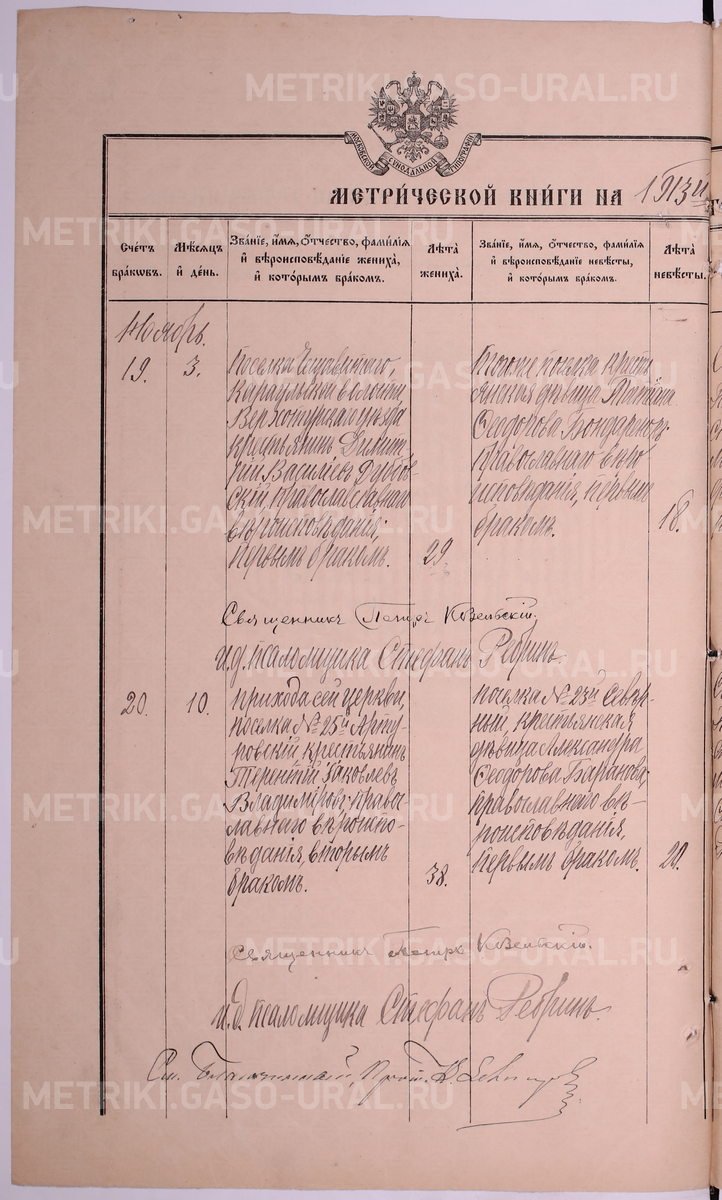 МОСКОВСКОЙ СѴНОДАЛЬНОЙ ТИПОГРАФІИ
МЕТРИ́ЧЕСКОЙ КНИ́ГИ НА 1913 й
Сче́тъ бра́кѡвъ.
Мѣ́сѧцъ и҆ де́нь.
Зва́нїе, и҆́мѧ, ѻ҆́тчество, фами́лїѧ и҆ вѣроисповѣ́данїе жениха̀, и҆ кото́рымъ бра́комъ.
Лѣ́та жениха̀.
Зва́нїе, и҆́мѧ, ѻ҆́тчество, фами́лїѧ и҆ вѣроисповѣ́данїе невѣ́сты, и҆ кото́рымъ бра́комъ.
Лѣ́та невѣ́сты.
Ноябрь.
19.
3.
Поселка
Караульской волости,
Верхотурскаго уѣзда
крестьянинъ Димит-
рій Васильевъ Дубов-
скій, православнаго
вѣроисповѣданія;
первымъ бракомъ.
29.
Тогоже поселка кресть-
янская дѣвица
Ѳеодорова Бондаренко
православнаго вѣро-
исповѣданія, первымъ
бракомъ.
18.
Священникъ Петръ Козельскій.
и.д. псаломщика Стефанъ Ребринъ.
20.
10.
Прихода сей церкви,
поселка № 25й Арту-
ровскій, крестьянинъ
Терентій Іаковлевъ
Владиміровъ, право-
славнаго вѣроиспо-
вѣданія, вторымъ
бракомъ.
38.
поселка № 23й Север-
ный, крестьянская
дѣвица Александра
Ѳеодорова Баранова;
православнаго вѣ-
роисповѣданія,
первымъ бракомъ.
20.
Священникъ Петръ Козельскій.
и.д. псаломщика Стефанъ Ребринъ.
См. Благочинный, Прот.
METRIKI.GASO-URAL.RU